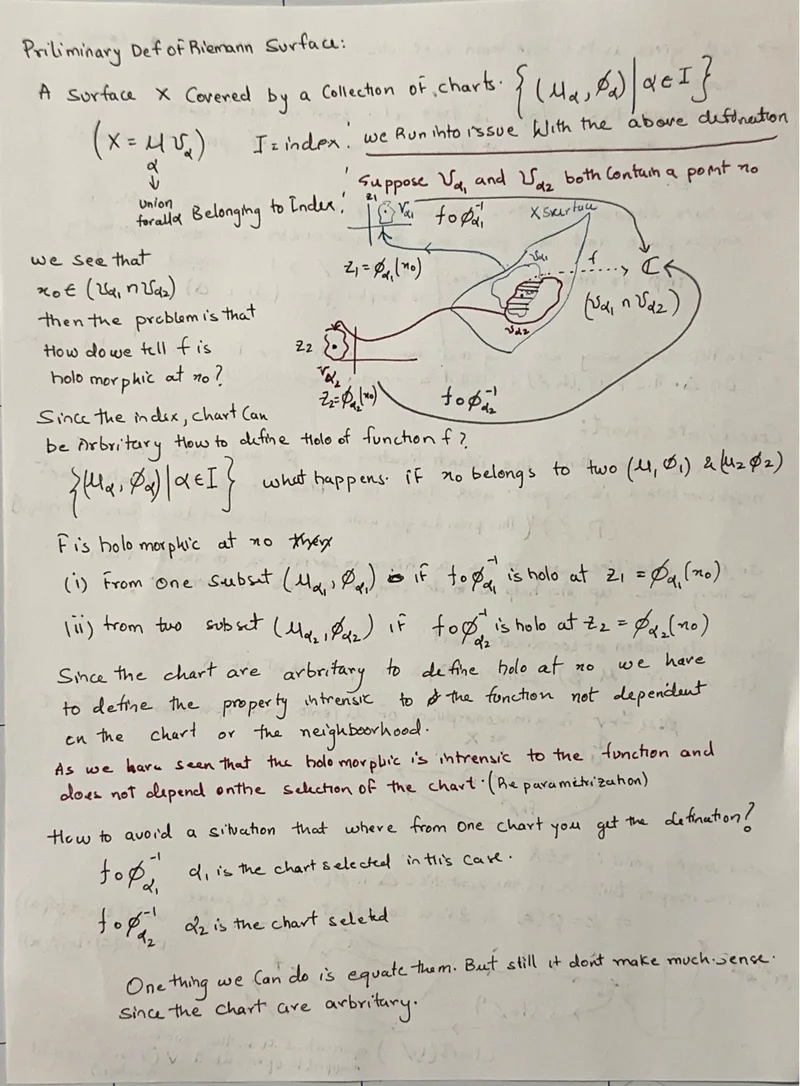 Priliminary Def of Riemann Surface:
A Surface X Covered by a Collection of charts. {(U_α, φ_α) | α ∈ I}
(X = ∪_α U_α) I = index! we Run into issue With the above defination
↓
union
for all α Belonging to Index!
Suppose U_α1 and U_α2 both Contain a point x0
z1 V_α1 f∘φ_α1^-1 X surface
z1 = φ_α1(x0) U_α1 f ℂ
(U_α1 ∩ U_α2)
U_α2
z2
V_α2
z2 = φ_α2(x0) f∘φ_α2^-1
we see that
x0 ∈ (U_α1 ∩ U_α2)
then the problem is that
How do we tell f is
holomorphic at x0?
Since the index, chart Can
be Arbritary How to define Holo of function f?
{(U_α, φ_α) | α ∈ I} what happens. if x0 belongs to two (U_1 φ_1) & (U_2 φ_2)
F is holomorphic at x0
(i) From one subset (U_α1, φ_α1) if f∘φ_α1^-1 is holo at z1 = φ_α1(x0)
(ii) from two subset (U_α2, φ_α2) if f∘φ_α2^-1 is holo at z2 = φ_α2(x0)
Since the chart are arbritary to define holo at x0 we have
to define the property intrensic to the function not dependent
on the chart or the neighboorhood.
As we have seen that the holomorphic is intrensic to the function and
does not depend on the selection of the chart. (Re parametrization)
How to avoid a situation that where from one chart you get the defination?
f∘φ_α1^-1 α1 is the chart selected in this case.
f∘φ_α2^-1 α2 is the chart seleted
One thing we Can do is equate them. But still it dont make much sense.
Since the chart are arbritary.